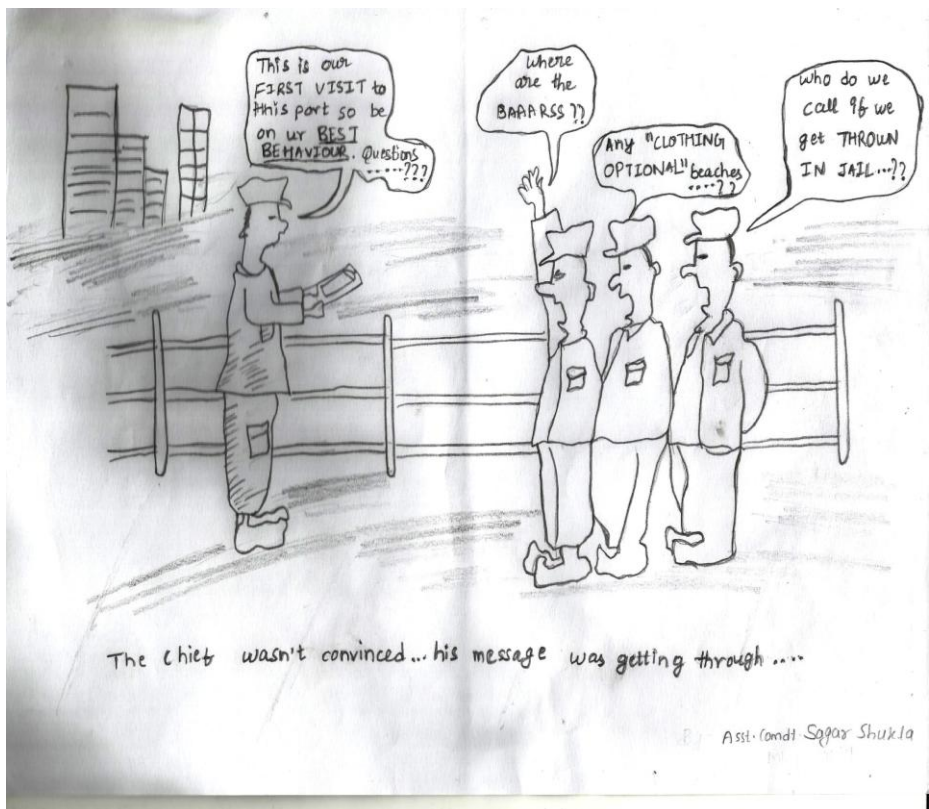 This is our
FIRST VISIT to
this port so be
on ur BEST
BEHAVIOUR. Questions
.....???
Where
are the
BAAARSS ??
Any "CLOTHING
OPTIONAL" beaches
....??
Who do we
call if we
get THROWN
IN JAIL...??
The chief wasn't convinced... his message was getting through ....
Asst. Comdt Sagar Shukla